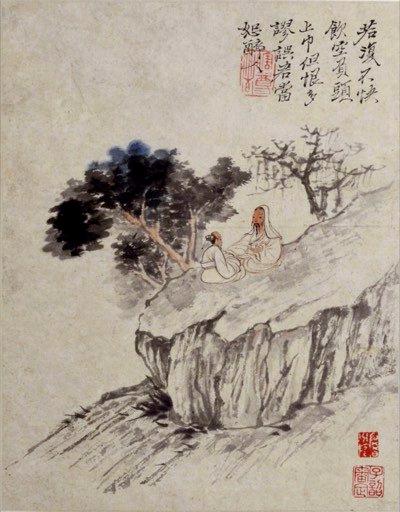 若復不快
飲空負頭
上巾但恨多
謬誤君當
恕醉人